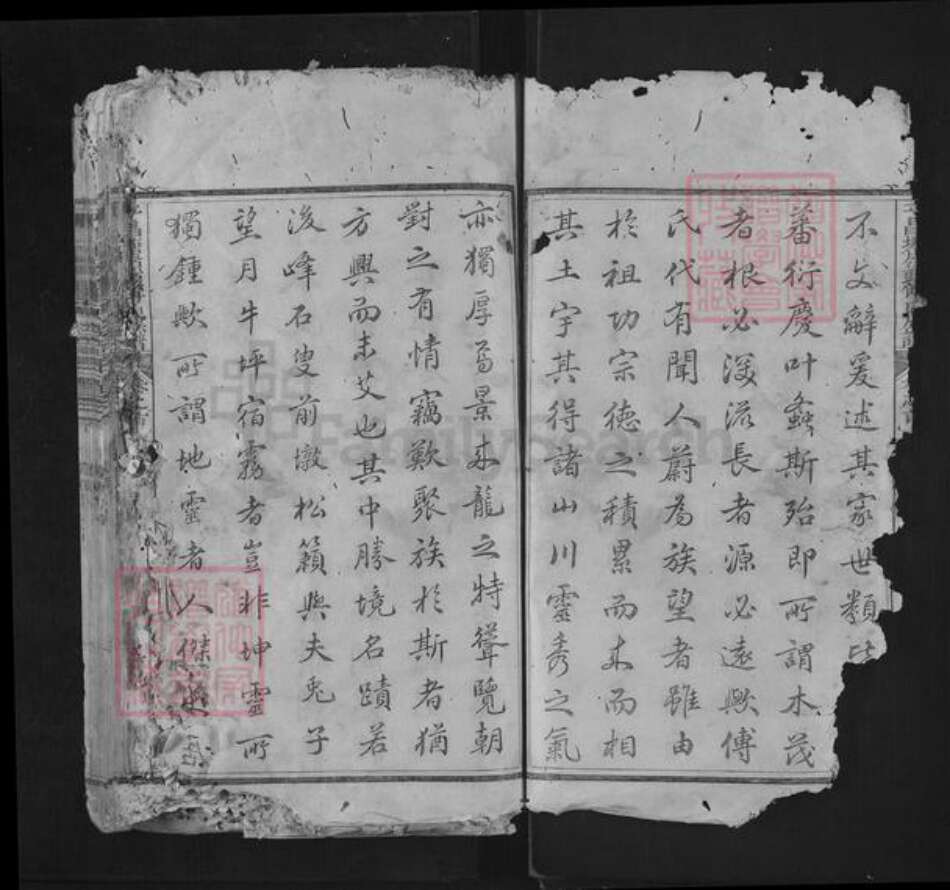 不文辭爰述其家世類
蕃衍慶叶螽斯殆即所謂木茂
者根必深流長者源必遠歟傅
氏代有聞人蔚為族望者雖由
於祖功宗德之積累而來而相
其土宇其得諸山川靈秀之氣
亦獨厚焉景來龍之特聳覽朝
對之有情竊歎聚族於斯者猶
方興而未艾也其中勝境名蹟若
後峰石叟前墩松籟與夫兎子
望月牛坪宿霧者豈非坤靈所
獨鍾歟所謂地靈者人傑
FamilySearch